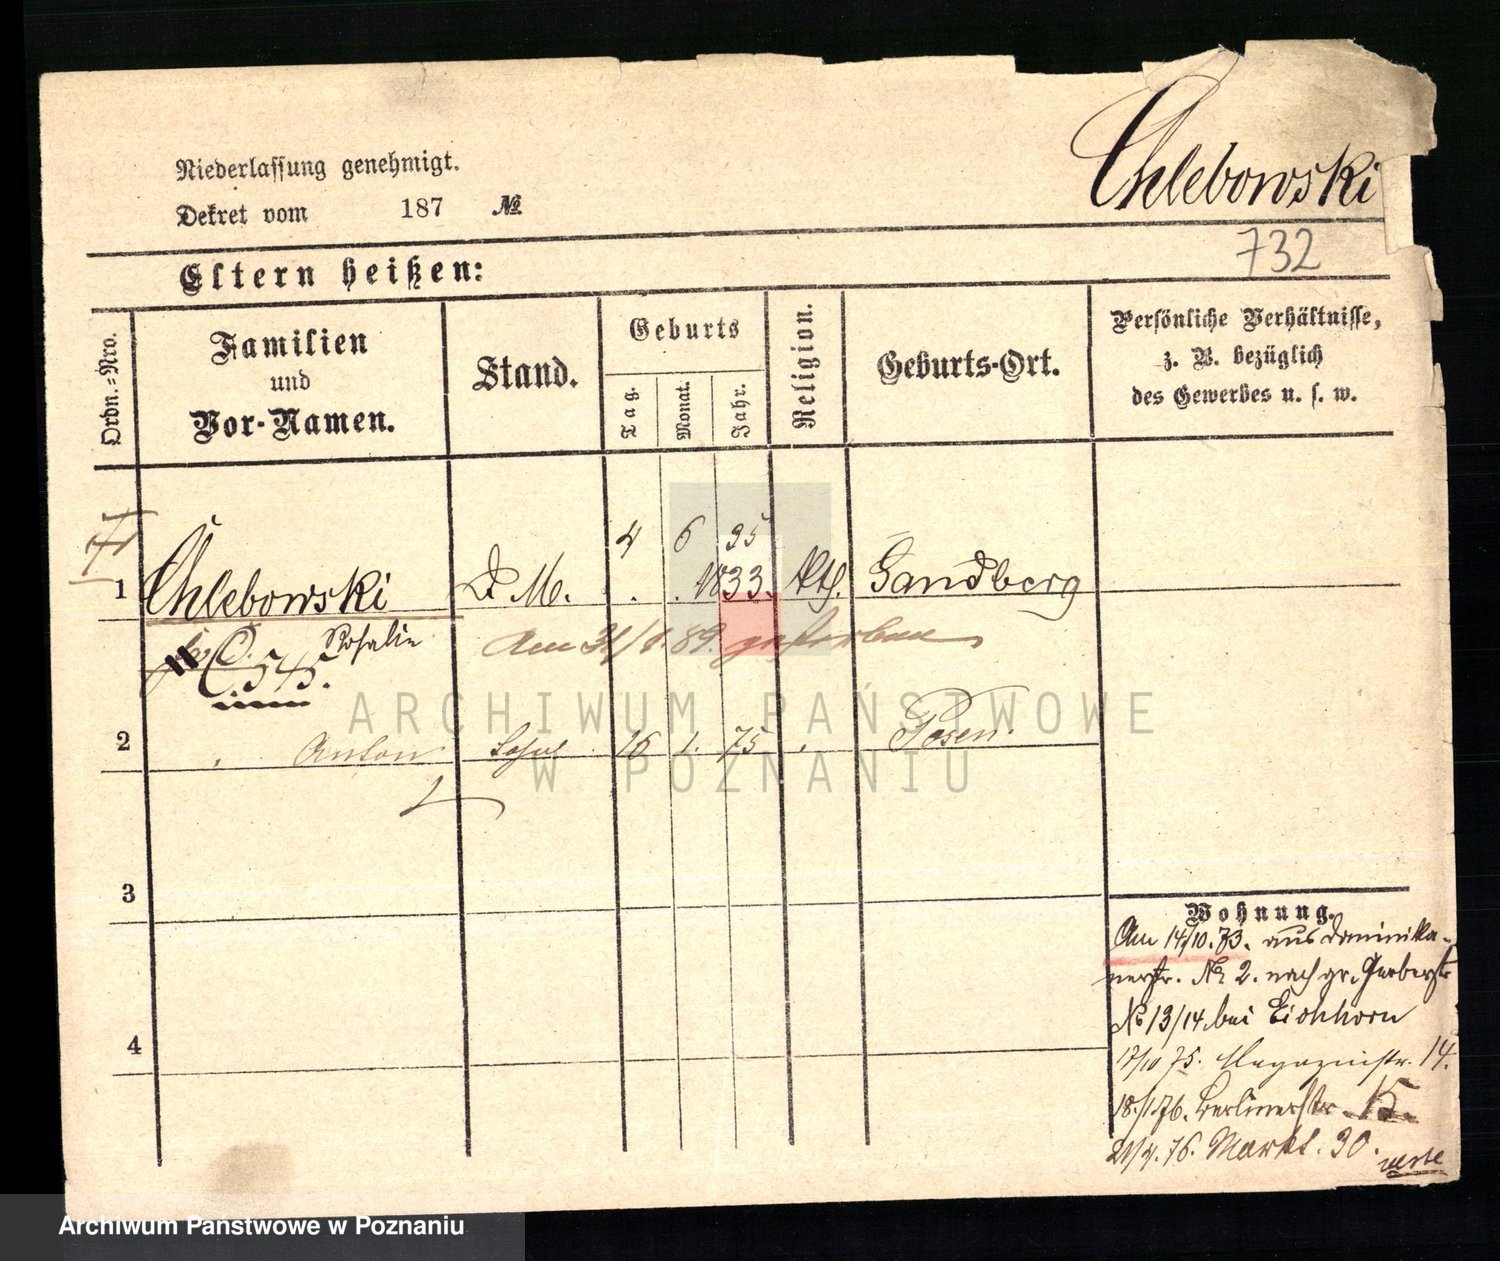 Chlebowski
Niederlassung genehmigt.
Dekret vom 187 №
732
Eltern heißen:
Ordn.-Nro.
Familien
und
Vor-Namen.
Stand.
Geburts
Tag.
Monat.
Jahr.
Religion.
Geburts-Ort.
Persönliche Verhältnisse,
z. B. bezüglich
des Gewerbes u. s. w.
4 6 35
1 Chlebowski D. M. 1833. kth. Sandberg
Rosalie Am 31/ 89. gestorben
C. 545.
ARCHIWUM PAŃSTWOWE
2 Anton Sohn 16 1. 75. Posen.
W POZNANIU
3
4
Wohnung.
Am 14/10.73. aus Dominika-
nerstr. № 2. nach gr. Gerberstr
№ 13/14 bei Eichhorn
17/10 75. Magazinstr. 14.
18./1.76. Berlinerstr. 15.
21/4.76. Markt. 30.
verte
Archiwum Państwowe w Poznaniu